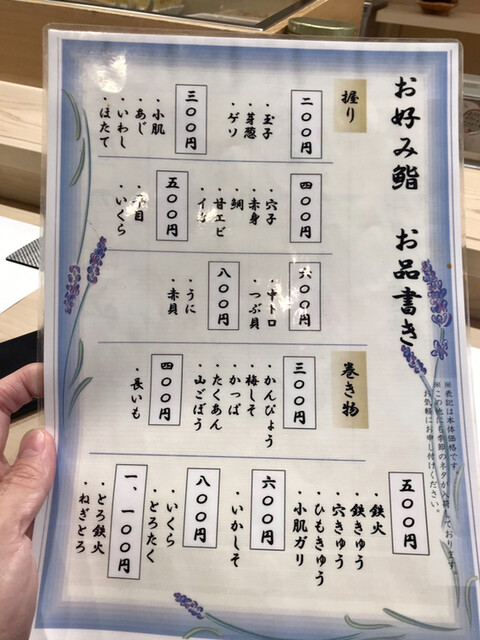 お好み鮨 お品書き
※表記は本体価格です。
※この他にも季節のネタが入荷しております。
お気軽にお申し付けください。
握り
二〇〇円
・玉子
・芽葱
・ゲソ
三〇〇円
・小肌
・あじ
・いわし
・ほたて
四〇〇円
・穴子
・赤身
・鯛
・甘エビ
・イカ
五〇〇円
・いくら
六〇〇円
・中トロ
・つぶ貝
八〇〇円
・うに
・赤貝
巻き物
三〇〇円
・かんぴょう
・梅しそ
・かっぱ
・たくあん
・山ごぼう
四〇〇円
・長いも
五〇〇円
・鉄火
・鉄きゅう
・穴きゅう
・ひもきゅう
・小肌ガリ
六〇〇円
・いかしそ
八〇〇円
・いくら
・とろたく
一、一〇〇円
・とろ鉄火
・ねぎとろ